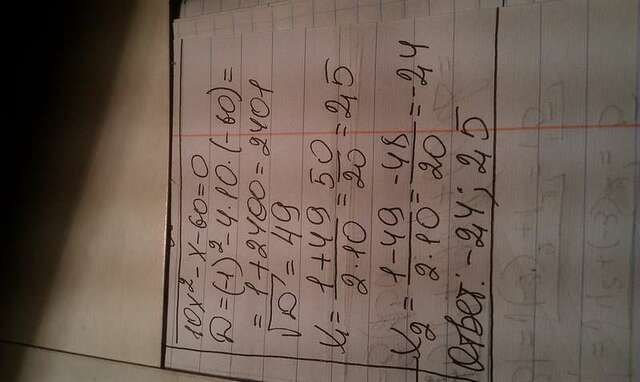 10x² - x - 60 = 0
D = (1)² - 4·10·(-60) =
= 1 + 2400 = 2401
√D = 49
x₁ = (1 + 49)/(2·10) = 50/20 = 2,5
x₂ = (1 - 49)/(2·10) = -48/20 = -2,4
Ответ: -2,4; 2,5